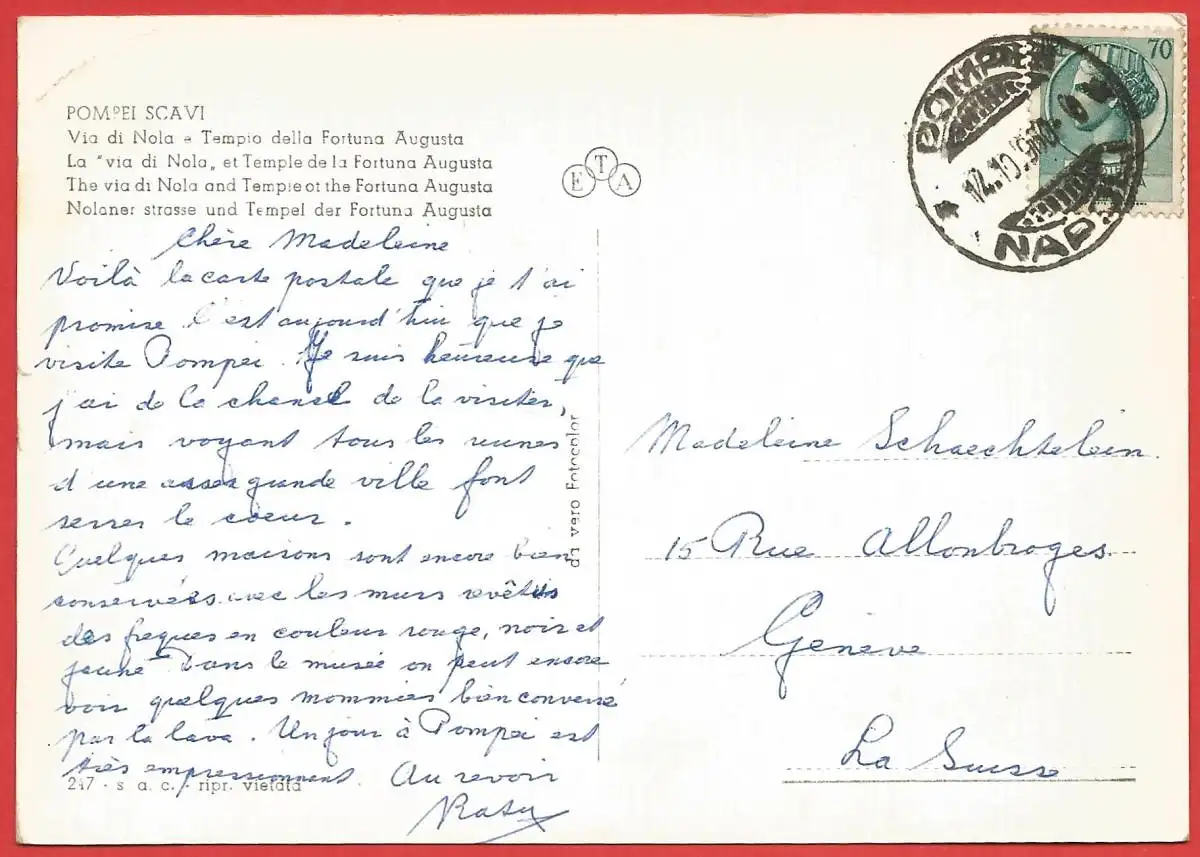 POMPEI SCAVI
Via di Nola e Tempio della Fortuna Augusta
La "via di Nola„ et Temple de la Fortuna Augusta
The via di Nola and Temple of the Fortuna Augusta
Nolaner strasse und Tempel der Fortuna Augusta
E T A
70
POMPEI
12.10.19
NAPOLI
Chère Madeleine
Voilà la carte postale que je t'ai
promise. C'est aujourd'hui que je
visite Pompei. Je suis heureuse que
j'ai de la chance de la visiter,
mais voyant tous les ruines
d'une assez grande ville font
serrer le coeur.
Quelques maisons sont encore bien
conservées avec les murs revêtus
des freques en couleur rouge, noir et
jaune. Dans le musée on peut encore
voir quelques mommies bien conversé
par la lava. Un jour à Pompei est
très empressionnent. Au revoir
da vero Fotocolor
Madeleine Schaechtelein
15 Rue Allonbroges
Genève
La Suisse
247 - s. a. c. - ripr. vietata